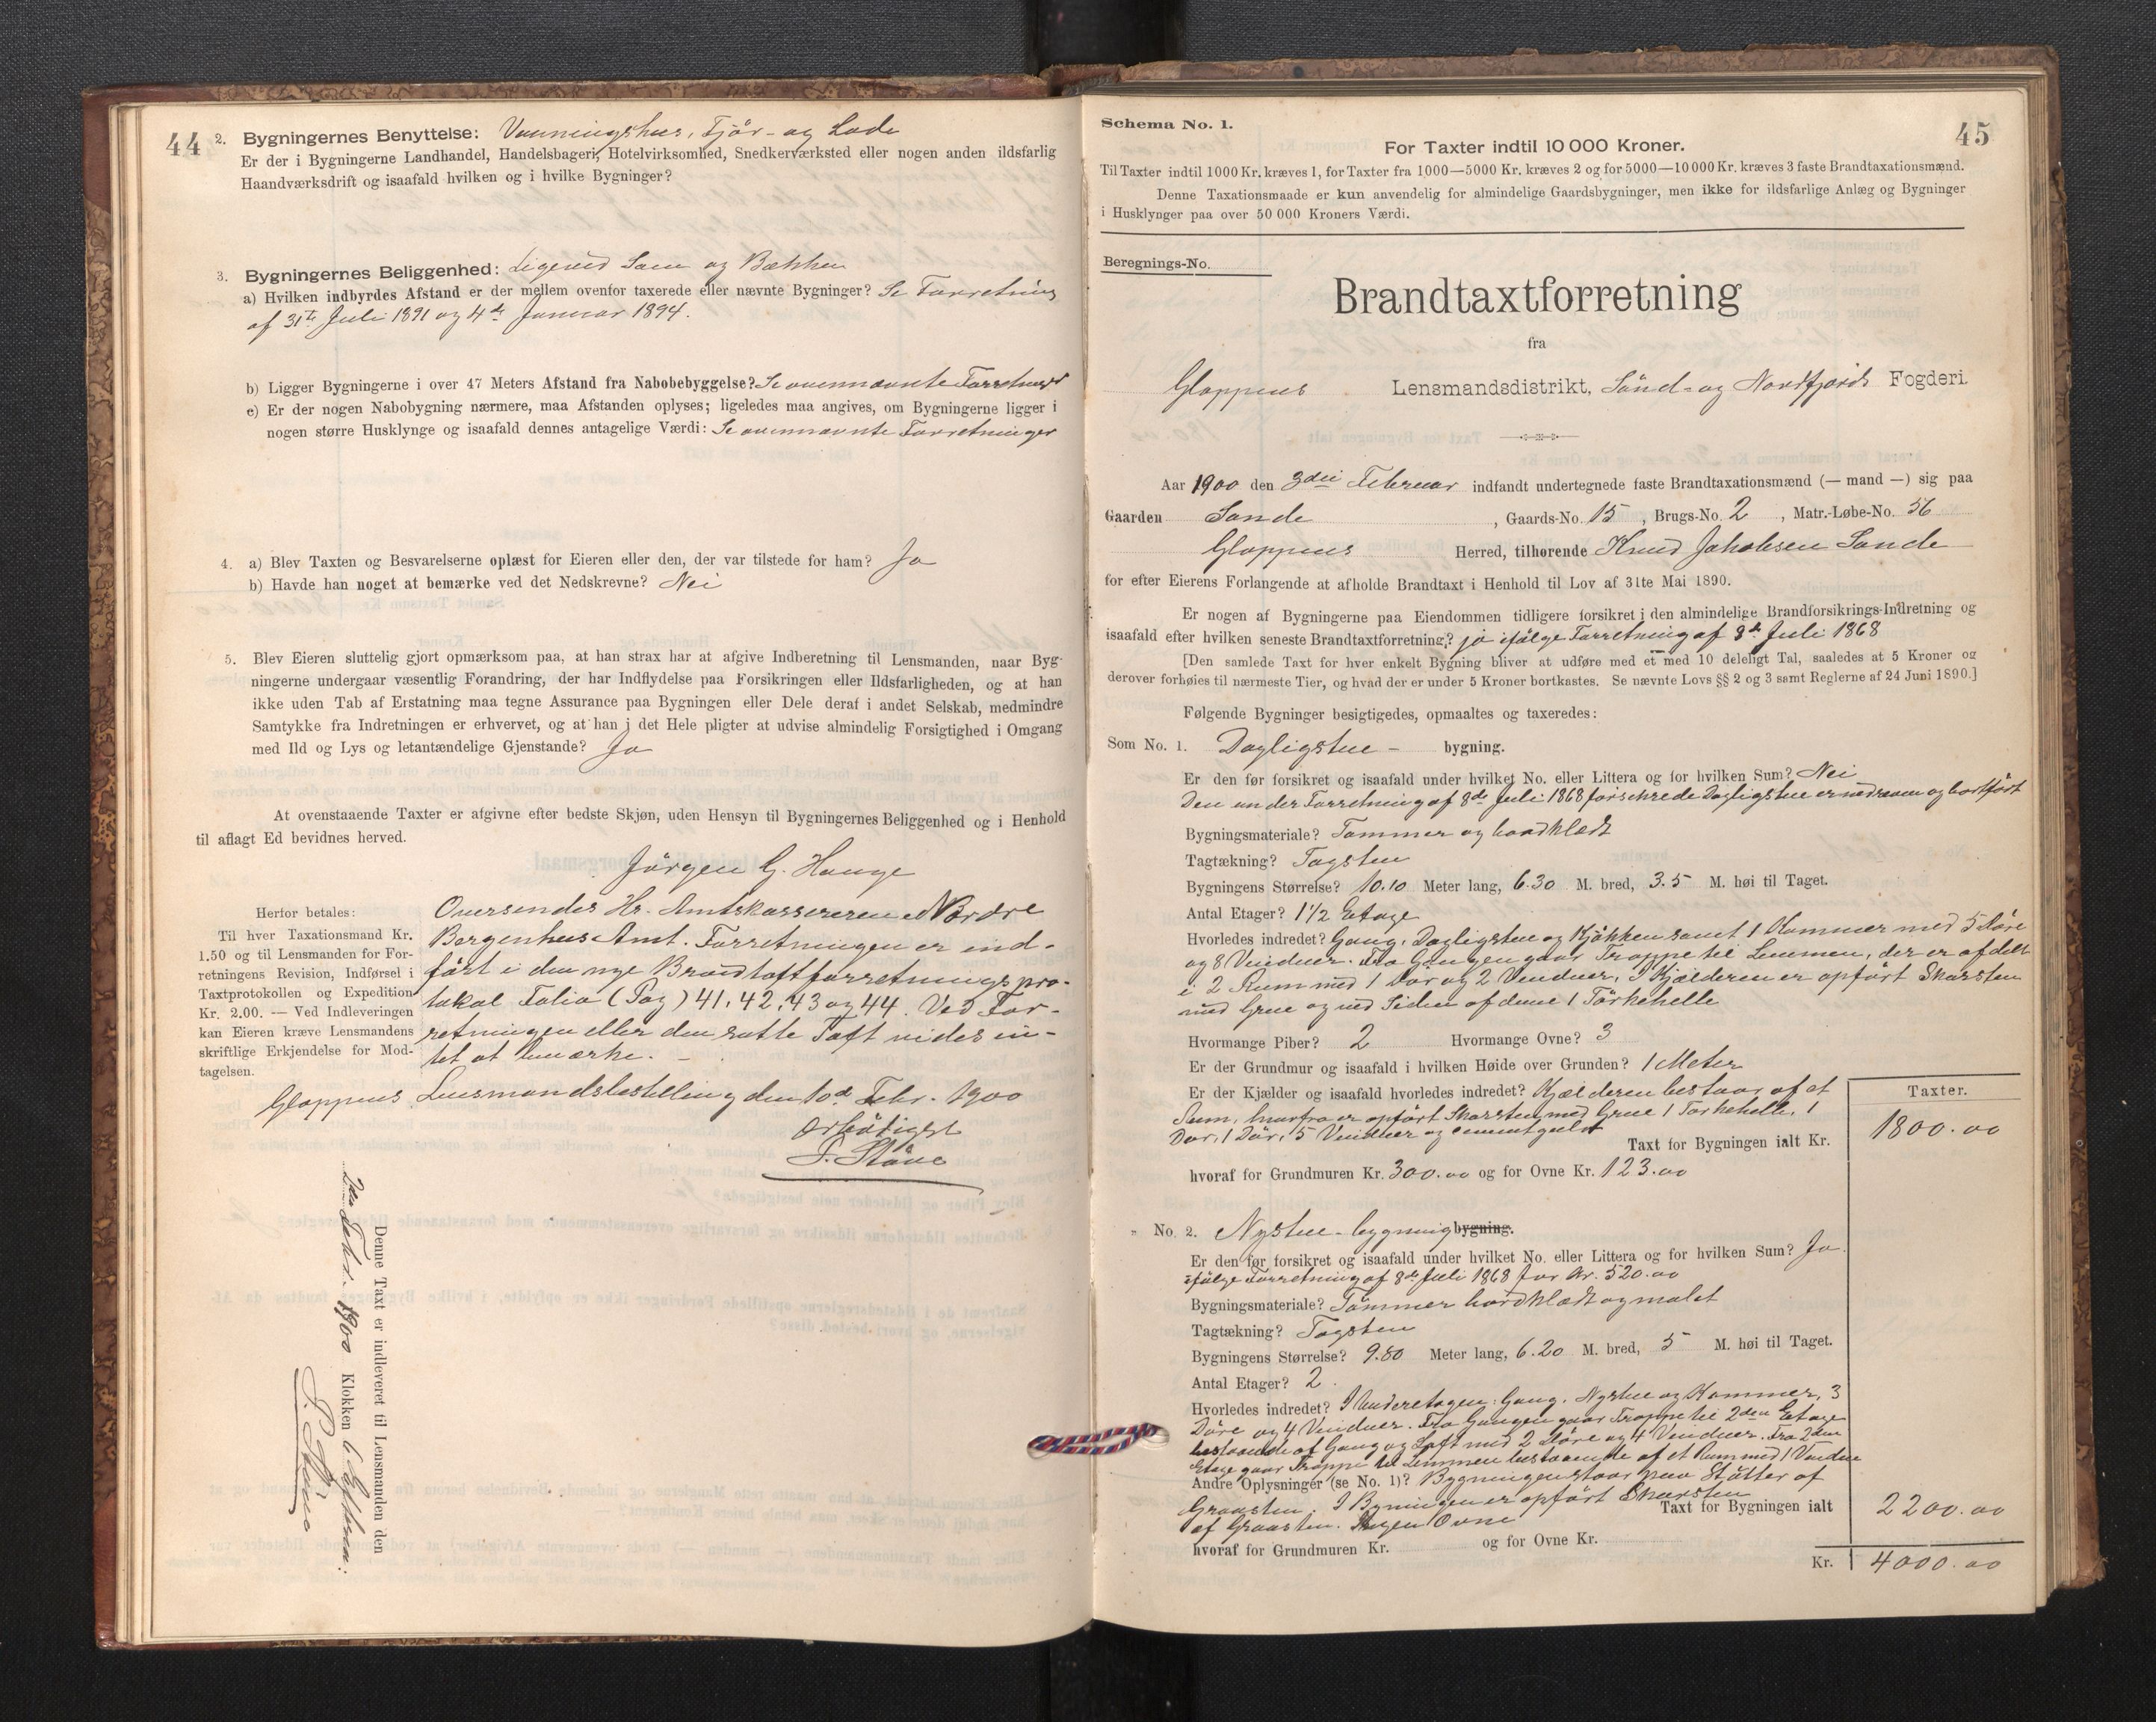 44
2. Bygningernes Benyttelse: Vaaningshus, Fjös- og Lade
Er der i Bygningerne Landhandel, Handelsbageri, Hotelvirksomhed, Snedkerværksted eller nogen anden ildsfarlig
Haandværksdrift og isaafald hvilken og i hvilke Bygninger?
3. Bygningernes Beliggenhed: Ligeved Søen og Bækken
a) Hvilken indbyrdes Afstand er der mellem ovenfor taxerede eller nævnte Bygninger? Se Forretning
af 31te Juli 1891 og 4de Januar 1894.
b) Ligger Bygningerne i over 47 Meters Afstand fra Nabobebyggelse? Se ovennævnte Forretninger
c) Er der nogen Nabobygning nærmere, maa Afstanden oplyses; ligeledes maa angives, om Bygningerne ligger i
nogen større Husklynge og isaafald dennes antagelige Værdi: Se ovennævnte Forretninger
4. a) Blev Taxten og Besvarelserne oplæst for Eieren eller den, der var tilstede for ham? Ja
b) Havde han noget at bemærke ved det Nedskrevne? Nei
5. Blev Eieren sluttelig gjort opmærksom paa, at han strax har at afgive Indberetning til Lensmanden, naar Byg-
ningerne undergaar væsentlig Forandring, der har Indflydelse paa Forsikringen eller Ildsfarligheden, og at han
ikke uden Tab af Erstatning maa tegne Assurance paa Bygningen eller Dele deraf i andet Selskab, medmindre
Samtykke fra Indretningen er erhvervet, og at han i det Hele pligter at udvise almindelig Forsigtighed i Omgang
med Ild og Lys og letantændelige Gjenstande? Ja
At ovenstaaende Taxter er afgivne efter bedste Skjøn, uden Hensyn til Bygningernes Beliggenhed og i Henhold
til aflagt Ed bevidnes herved.
Jörgen G. Hauge
Herfor betales:
Til hver Taxationsmand Kr.
1.50 og til Lensmanden for For-
retningens Revision, Indførsel i
Taxtprotokollen og Expedition
Kr. 2.00. — Ved Indleveringen
kan Eieren kræve Lensmandens
skriftlige Erkjendelse for Mod-
tagelsen.
Oversendes Hr. Amtskassereren i Nordre
Bergenhus Amt. Forretningen er ind-
ført i den nye Brandtaftforretningspro-
tokol Folio (Pag) 41, 42, 43 og 44. Ved For-
retningen eller den satte Taft vides in-
tet at bemærke. —
Gloppens Lensmandsbestilling den 10de Febr. 1900
Ærbödigst
Denne Taxt er indleveret til Lensmanden den
2den Febr. 1900 Klokken 6 Efterm.
45
Schema No. 1.
For Taxter indtil 10 000 Kroner.
Til Taxter indtil 1000 Kr. kræves 1, for Taxter fra 1000—5000 Kr. kræves 2 og for 5000—10000 Kr. kræves 3 faste Brandtaxationsmænd.
Denne Taxationsmaade er kun anvendelig for almindelige Gaardsbygninger, men ikke for ildsfarlige Anlæg og Bygninger
i Husklynger paa over 50 000 Kroners Værdi.
Beregnings-No.
Brandtaxtforretning
fra
Gloppens Lensmandsdistrikt, Sönd- og Nordfjords Fogderi.
Aar 1900 den 3die Februar indfandt undertegnede faste Brandtaxationsmænd (— mand —) sig paa
Gaarden Sande, Gaards-No. 15, Brugs-No. 2, Matr.-Løbe-No. 56
Gloppens Herred, tilhørende Knud Jakobsen Sande
for efter Eierens Forlangende at afholde Brandtaxt i Henhold til Lov af 31te Mai 1890.
Er nogen af Bygningerne paa Eiendommen tidligere forsikret i den almindelige Brandforsikrings-Indretning og
isaafald efter hvilken seneste Brandtaxtforretning? ja ifølge Forretning af 8de Juli 1868
[Den samlede Taxt for hver enkelt Bygning bliver at udføre med et med 10 deleligt Tal, saaledes at 5 Kroner og
derover forhøies til nærmeste Tier, og hvad der er under 5 Kroner bortkastes. Se nævnte Lovs §§ 2 og 3 samt Reglerne af 24 Juni 1890.]
Følgende Bygninger besigtigedes, opmaaltes og taxeredes:
Som No. 1. Dagligstue - bygning.
Er den før forsikret og isaafald under hvilket No. eller Littera og for hvilken Sum? Nei
Den under Forretning af 8de Juli 1868 forsikrede Dagligstue er nedreven og bortført
Bygningsmateriale? Tømmer og bordklædt
Tagtækning? Tagsten
Bygningens Størrelse? 10.10 Meter lang, 6.30 M. bred, 3.5 M. høi til Taget.
Antal Etager? 1 1/2 Etage
Hvorledes indredet? Gang, Dagligstue og Kjøkken samt 1 Kammer med 5 Döre
og 8 Vinduer. Fra Gangen gaar Troppe til Lemmen, der er afdelt
i 2 Rum med 1 Dör og 2 Vinduer. I Kjælderen er opført Skorsten
med Grue og ved Siden af denne 1 Törkehelle
Hvormange Piber? 2 Hvormange Ovne? 3
Er der Grundmur og isaafald i hvilken Høide over Grunden? 1 Meter
Er der Kjælder og isaafald hvorledes indredet? Kjælderen bestaar af et
Rum, hvorfra er opført Skorsten med Grue 1 Törkehelle, 1
1 Dör, 5 Vinduer og cementgulv
Taxter.
Taxt for Bygningen ialt Kr. 1800.00
hvoraf for Grundmuren Kr. 300.00 og for Ovne Kr. 123.00
" No. 2. Nystue-bygning bygning.
Er den før forsikret og isaafald under hvilket No. eller Littera og for hvilken Sum? Ja
ifølge Forretning af 8de Juli 1868 for Kr. 520.00
Bygningsmateriale? Tømmer bordklædt og malet
Tagtækning? Tagsten
Bygningens Størrelse? 9.80 Meter lang, 6.20 M. bred, 5 M. høi til Taget.
Antal Etager? 2.
Hvorledes indredet? I Underetagen: Gang, Nystue og Kammer, 3
Döre og 4 Vinduer. Fra Gangen gaar Troppe til 2den Etage
bestaaende af Gang og Loft med 2 Döre og 4 Vinduer. Fra 2den
Etage gaar Troppe til Lemmen bestaaende af et Rum med 1 Vindue
Andre Oplysninger (se No. 1)? Bygningen staar paa Støtter af
Graasten. I Bygningen er opført Skorsten
af Graasten. Ingen Ovne
Taxt for Bygningen ialt 2200.00
hvoraf for Grundmuren Kr. og for Ovne Kr.
Kr. 4000.00